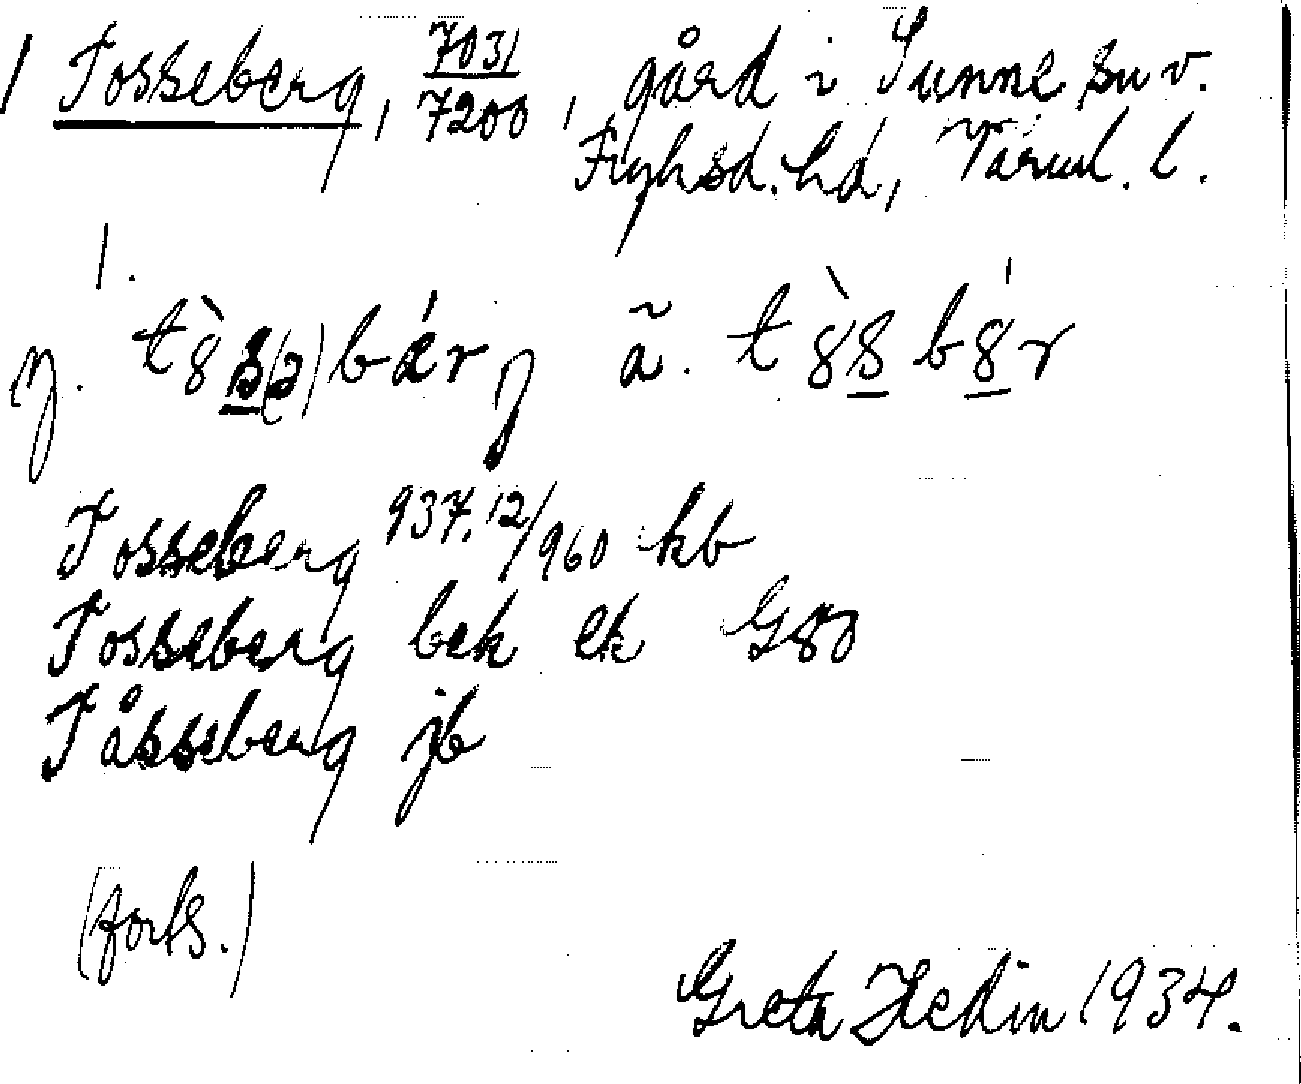 1 Tosseberg, 7031/7200, gård i Sunne sn v.
Fryksd. hd, Värml. l.
1.
y. t8̀s̲(ə)bǽrj ä. t8̀s̲b8̲́r
Tosseberg 937.12/960 kb
Tosseberg bek ek G80
Tåsseberg jb
(forts.)
Greta Hedin 1934.